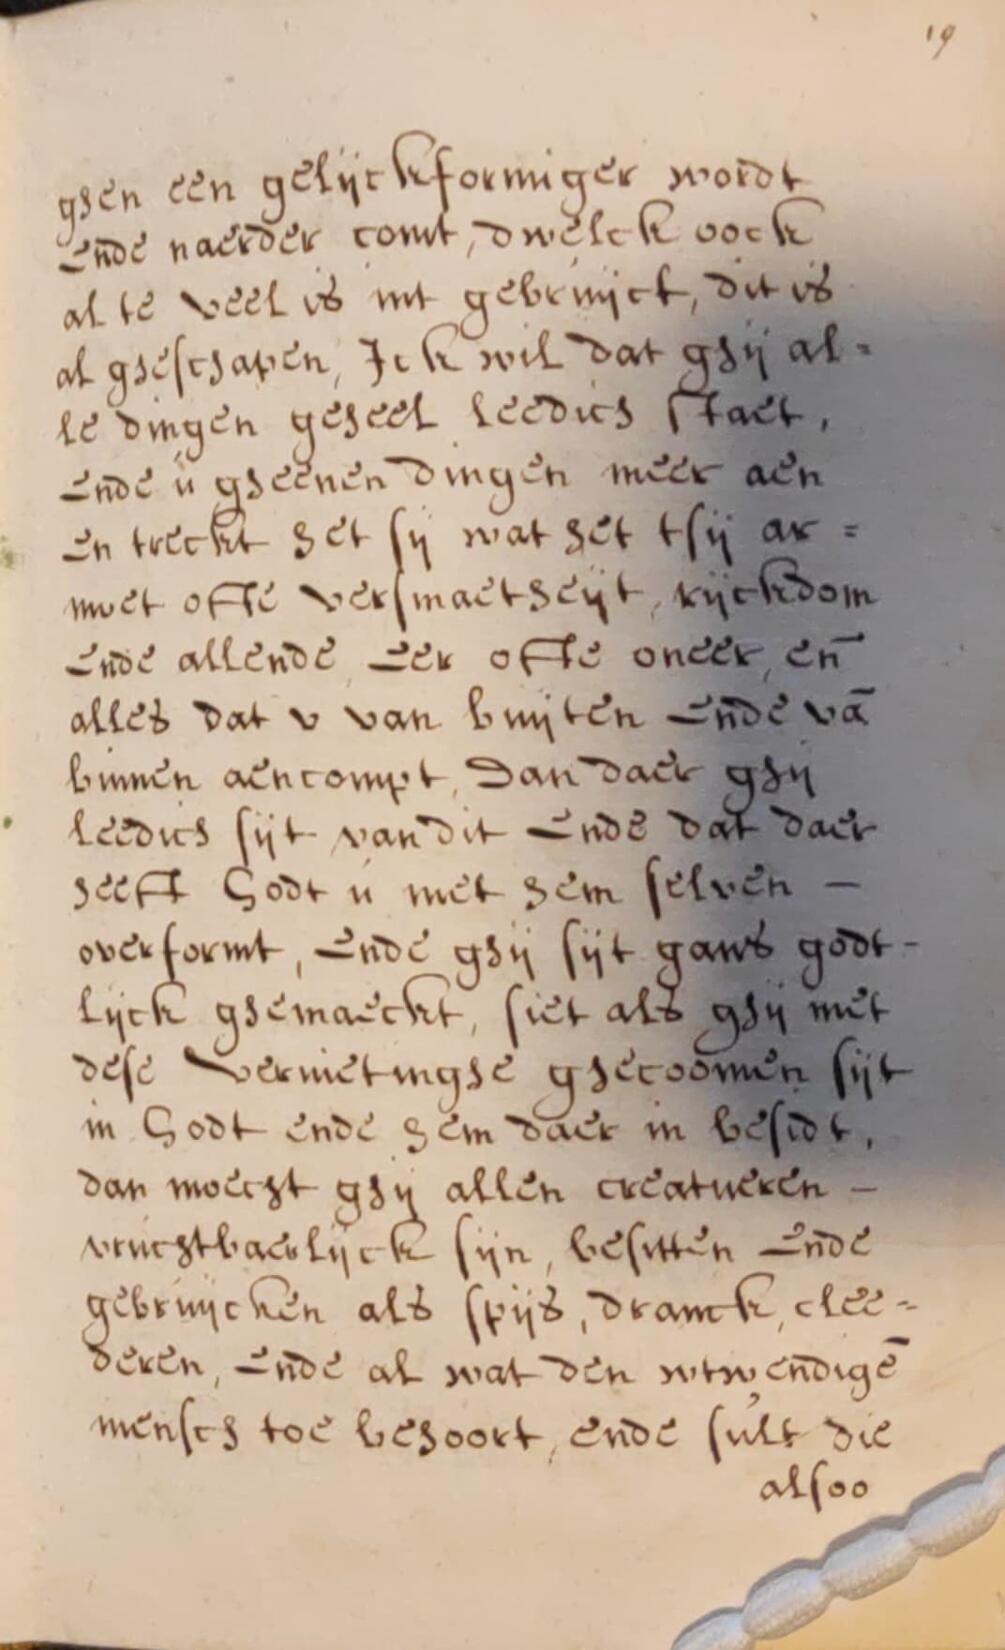 19
ghen een gelijckformiger wordt
Ende naerder comt, dwelck oock
al te veel is int gebruijck, dit is
al gheschapen, Ick wil dat ghij al=
le dingen geheel leedich staet,
Ende ú gheenen dingen meer aen
En treckt het sij wat het tsij ar=
moet ofte versmaetheijt, rijckdom
Ende allende, Eer ofte oneer, en̄
alles dat v van buijten Ende vā
binnen aencompt, Dan daer ghij
leedich sijt van dit Ende dat daer
heeft Godt ú met hem selven –
overformt, Ende ghij sijt gans godt-
lijck ghemaeckt, siet als ghij met
dese vernietinghe ghecoomen sijt
in Godt ende hem daer in besidt,
dan moecht ghij allen creatueren –
vruchtbaerlijck sijn, besitten Ende
gebruijcken als spijs, dranck, clee=
deren, Ende al wat den wtwendigē
mensch toe behoort, ende sult die
alsoo